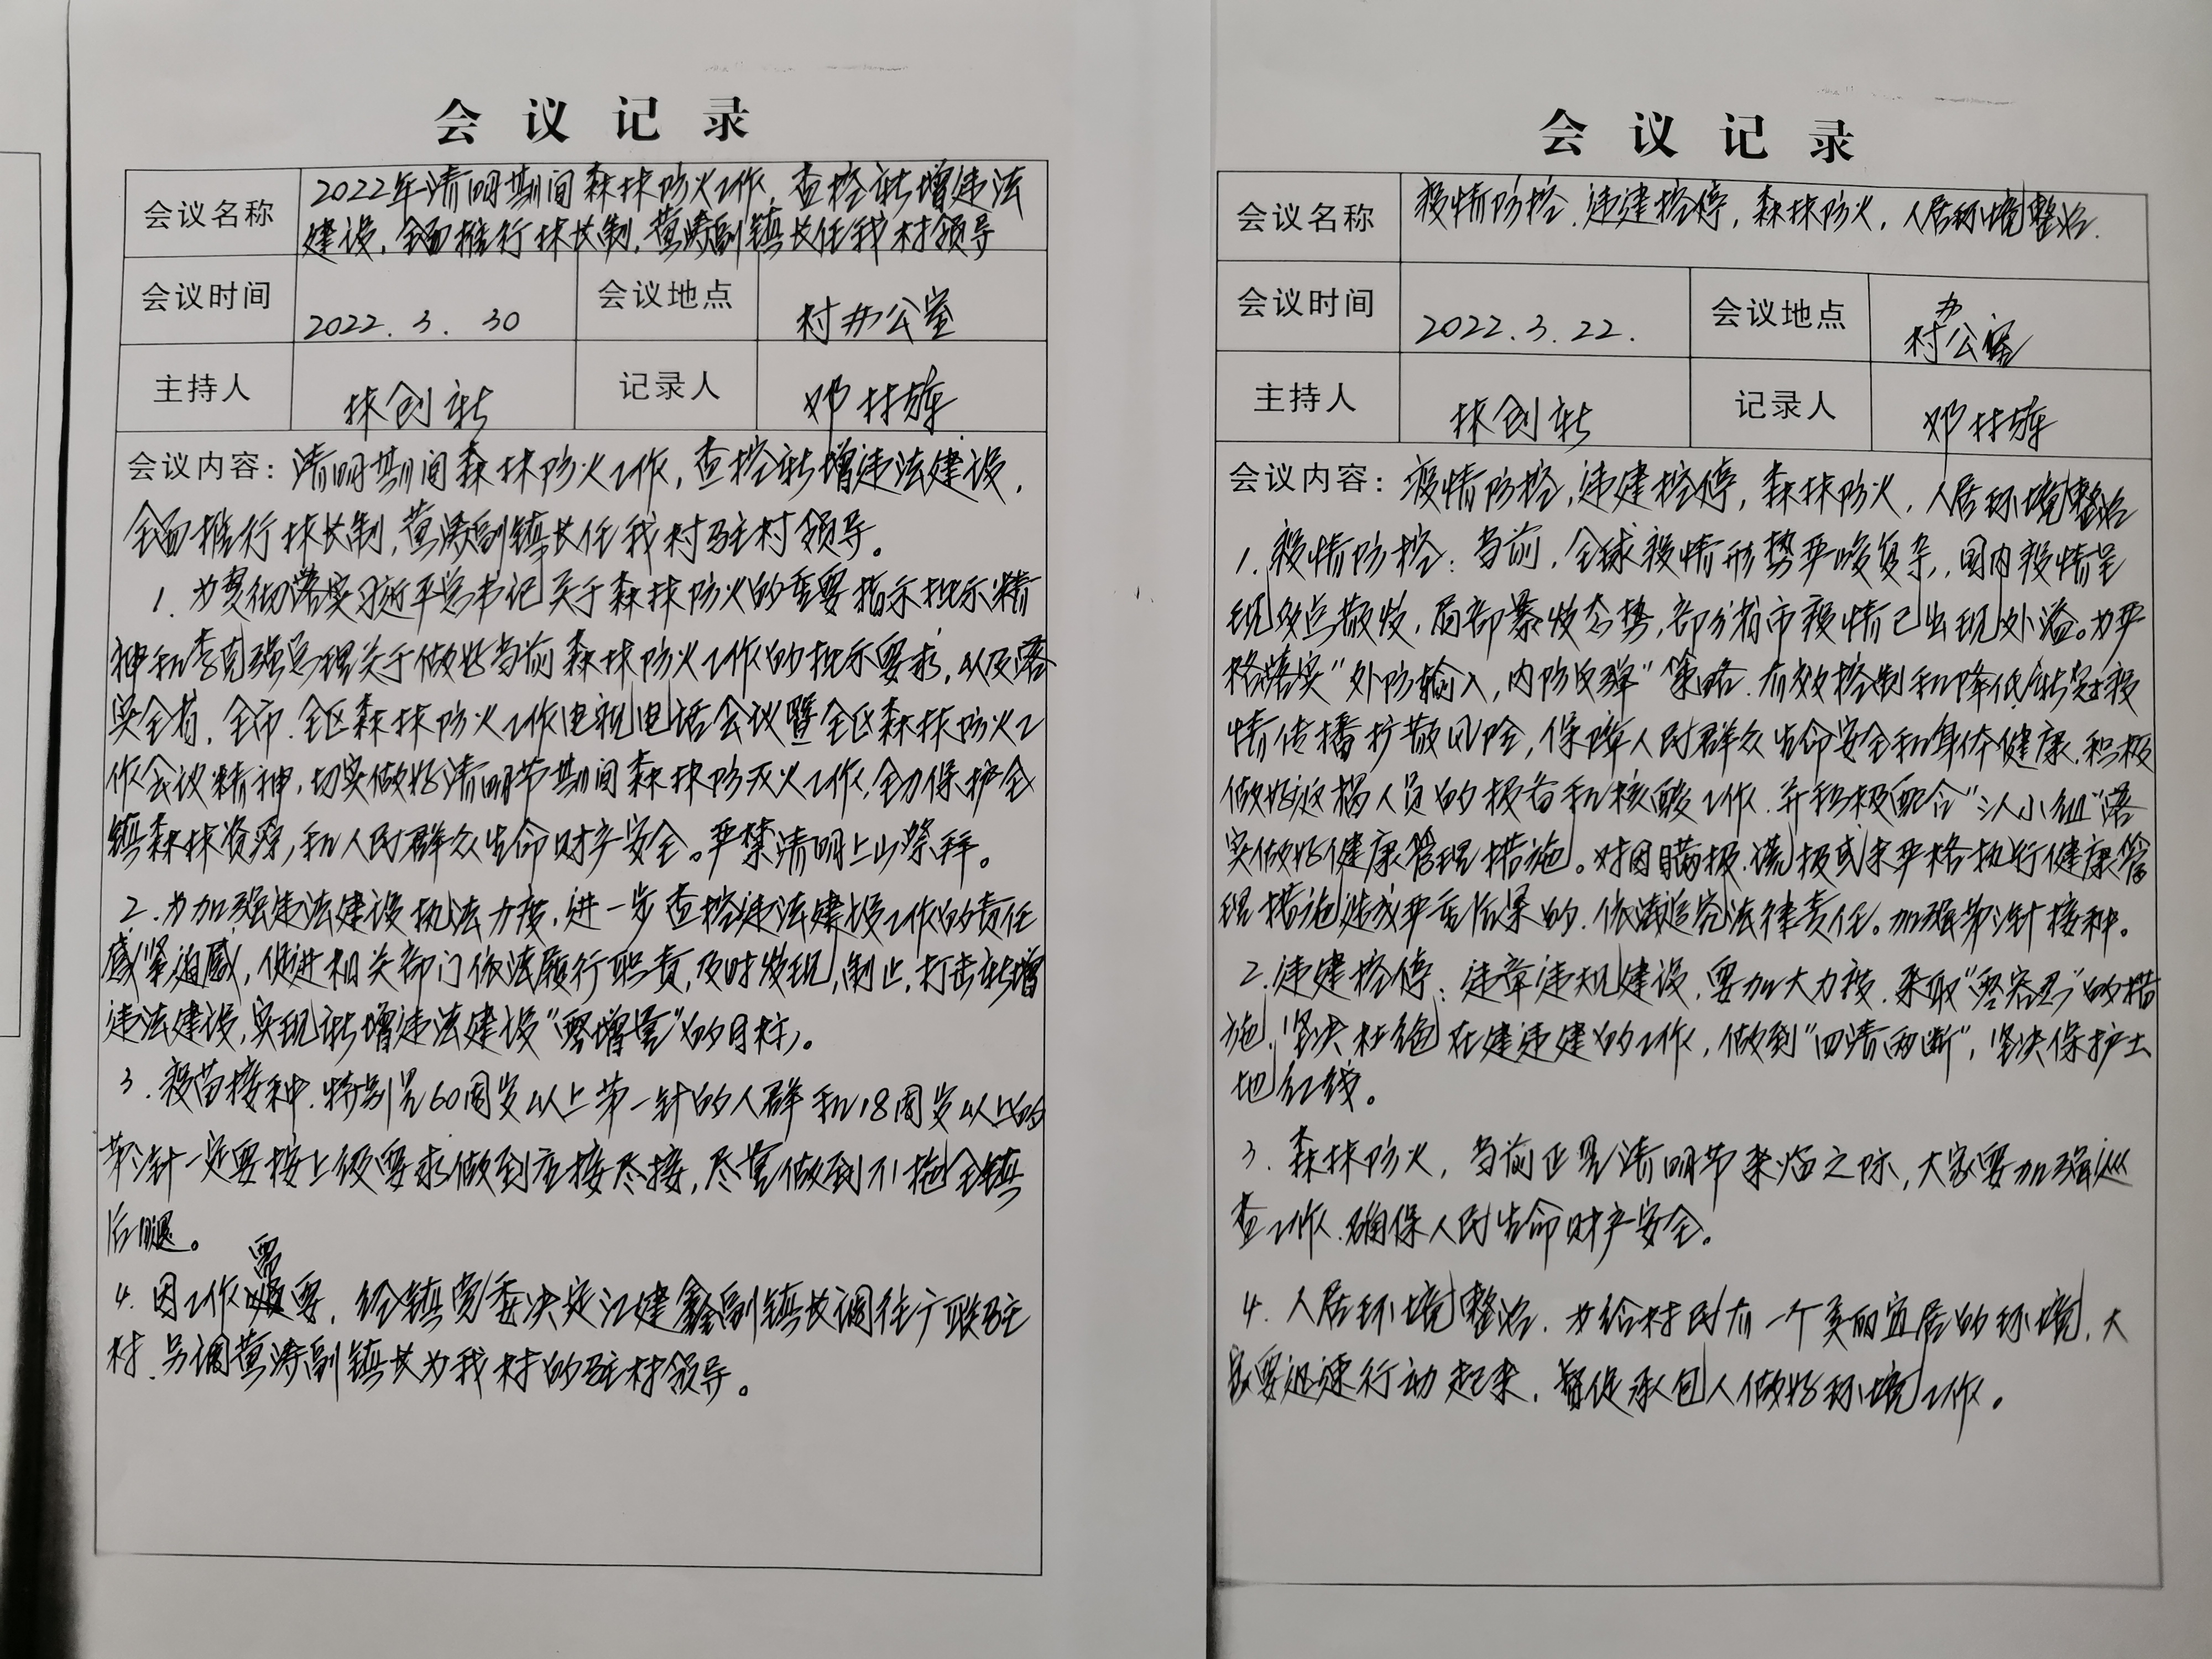 会议记录
会议名称
2022年清明期间森林防火工作,查控新增违法
建设,全面推行林长制,黄涛副镇长任我村领导
会议时间 2022.3.30 会议地点 村办公室
主持人 林创新 记录人 邓林
会议内容:清明期间森林防火工作,查控新增违法建设,
全面推行林长制,黄涛副镇长任我村驻村领导。
1.为贯彻落实习近平总书记关于森林防火的重要指示批示精
神和李克强总理关于做好当前森林防火工作的批示要求,以及落
实全省、全市、全区森林防火工作电视电话会议暨全区森林防火工
作会议精神,切实做好清明节期间森林防灭火工作,全力保护全
镇森林资源,和人民群众生命财产安全。严禁清明上山祭拜。
2.为加强违法建设执法力度,进一步查控违法建设工作的责任
感紧迫感,促进相关部门依法履行职责,及时发现,制止,打击新增
违法建设,实现新增违法建设"零增量"的目标。
3.疫苗接种.特别是60周岁以上第一针的人群和18周岁以上的
第3针一定要按上级要求做到应接尽接,尽量做到不拖全镇
后腿。
4.因工作需要,经镇党委决定江建鑫副镇长调往广联驻
村.另调黄涛副镇长为我村的驻村领导。
会议记录
会议名称 疫情防控.违建控停,森林防火,人居环境整治.
会议时间 2022.3.22. 会议地点 村办公室
主持人 林创新 记录人 邓林
会议内容:疫情防控,违建控停,森林防火,人居环境整治
1.疫情防控:当前,全球疫情形势严峻复杂,国内疫情呈
现多点散发,局部暴发态势,部分省市疫情已出现外溢。为严
格落实"外防输入,内防反弹"策略.有效控制和降低新冠疫
情传播扩散风险,保障人民群众生命安全和身体健康.积极
做好返揭人员的报备和核酸工作.并积极配合"三人小组"落
实做好健康管理措施。对因瞒报.谎报或未严格执行健康管
理措施造成严重后果的.依法追究法律责任。加强第3针接种。
2.违建控停:违章违规建设,要加大力度.采取"零容忍"的措
施.坚决杜绝在建违建的工作,做到"四清两断",坚决保护土
地红线。
3.森林防火,当前正是清明节来临之际,大家要加强巡
查工作.确保人民生命财产安全。
4.人居环境整治.为给村民有一个美丽宜居的环境,大
家要迅速行动起来.督促承包人做好环境工作。